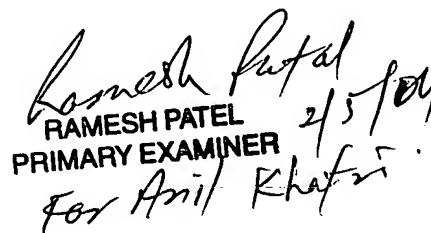 Ramesh Patel
RAMESH PATEL 2/5/04
PRIMARY EXAMINER
For Anil Khatri.